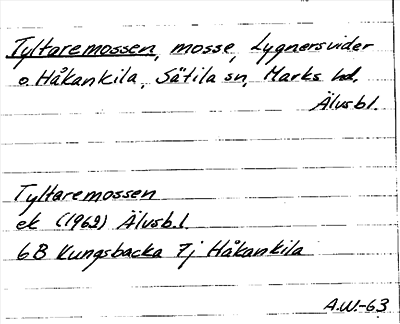 Tyltaremossen, mosse, Lygnersvider
o. Håkankila, Sätila sn, Marks hd,
Älvsbl.
Tyltaremossen
ek (1962) Älvsb.l.
6B Kungsbacka 7j Håkankila
A.W.-63